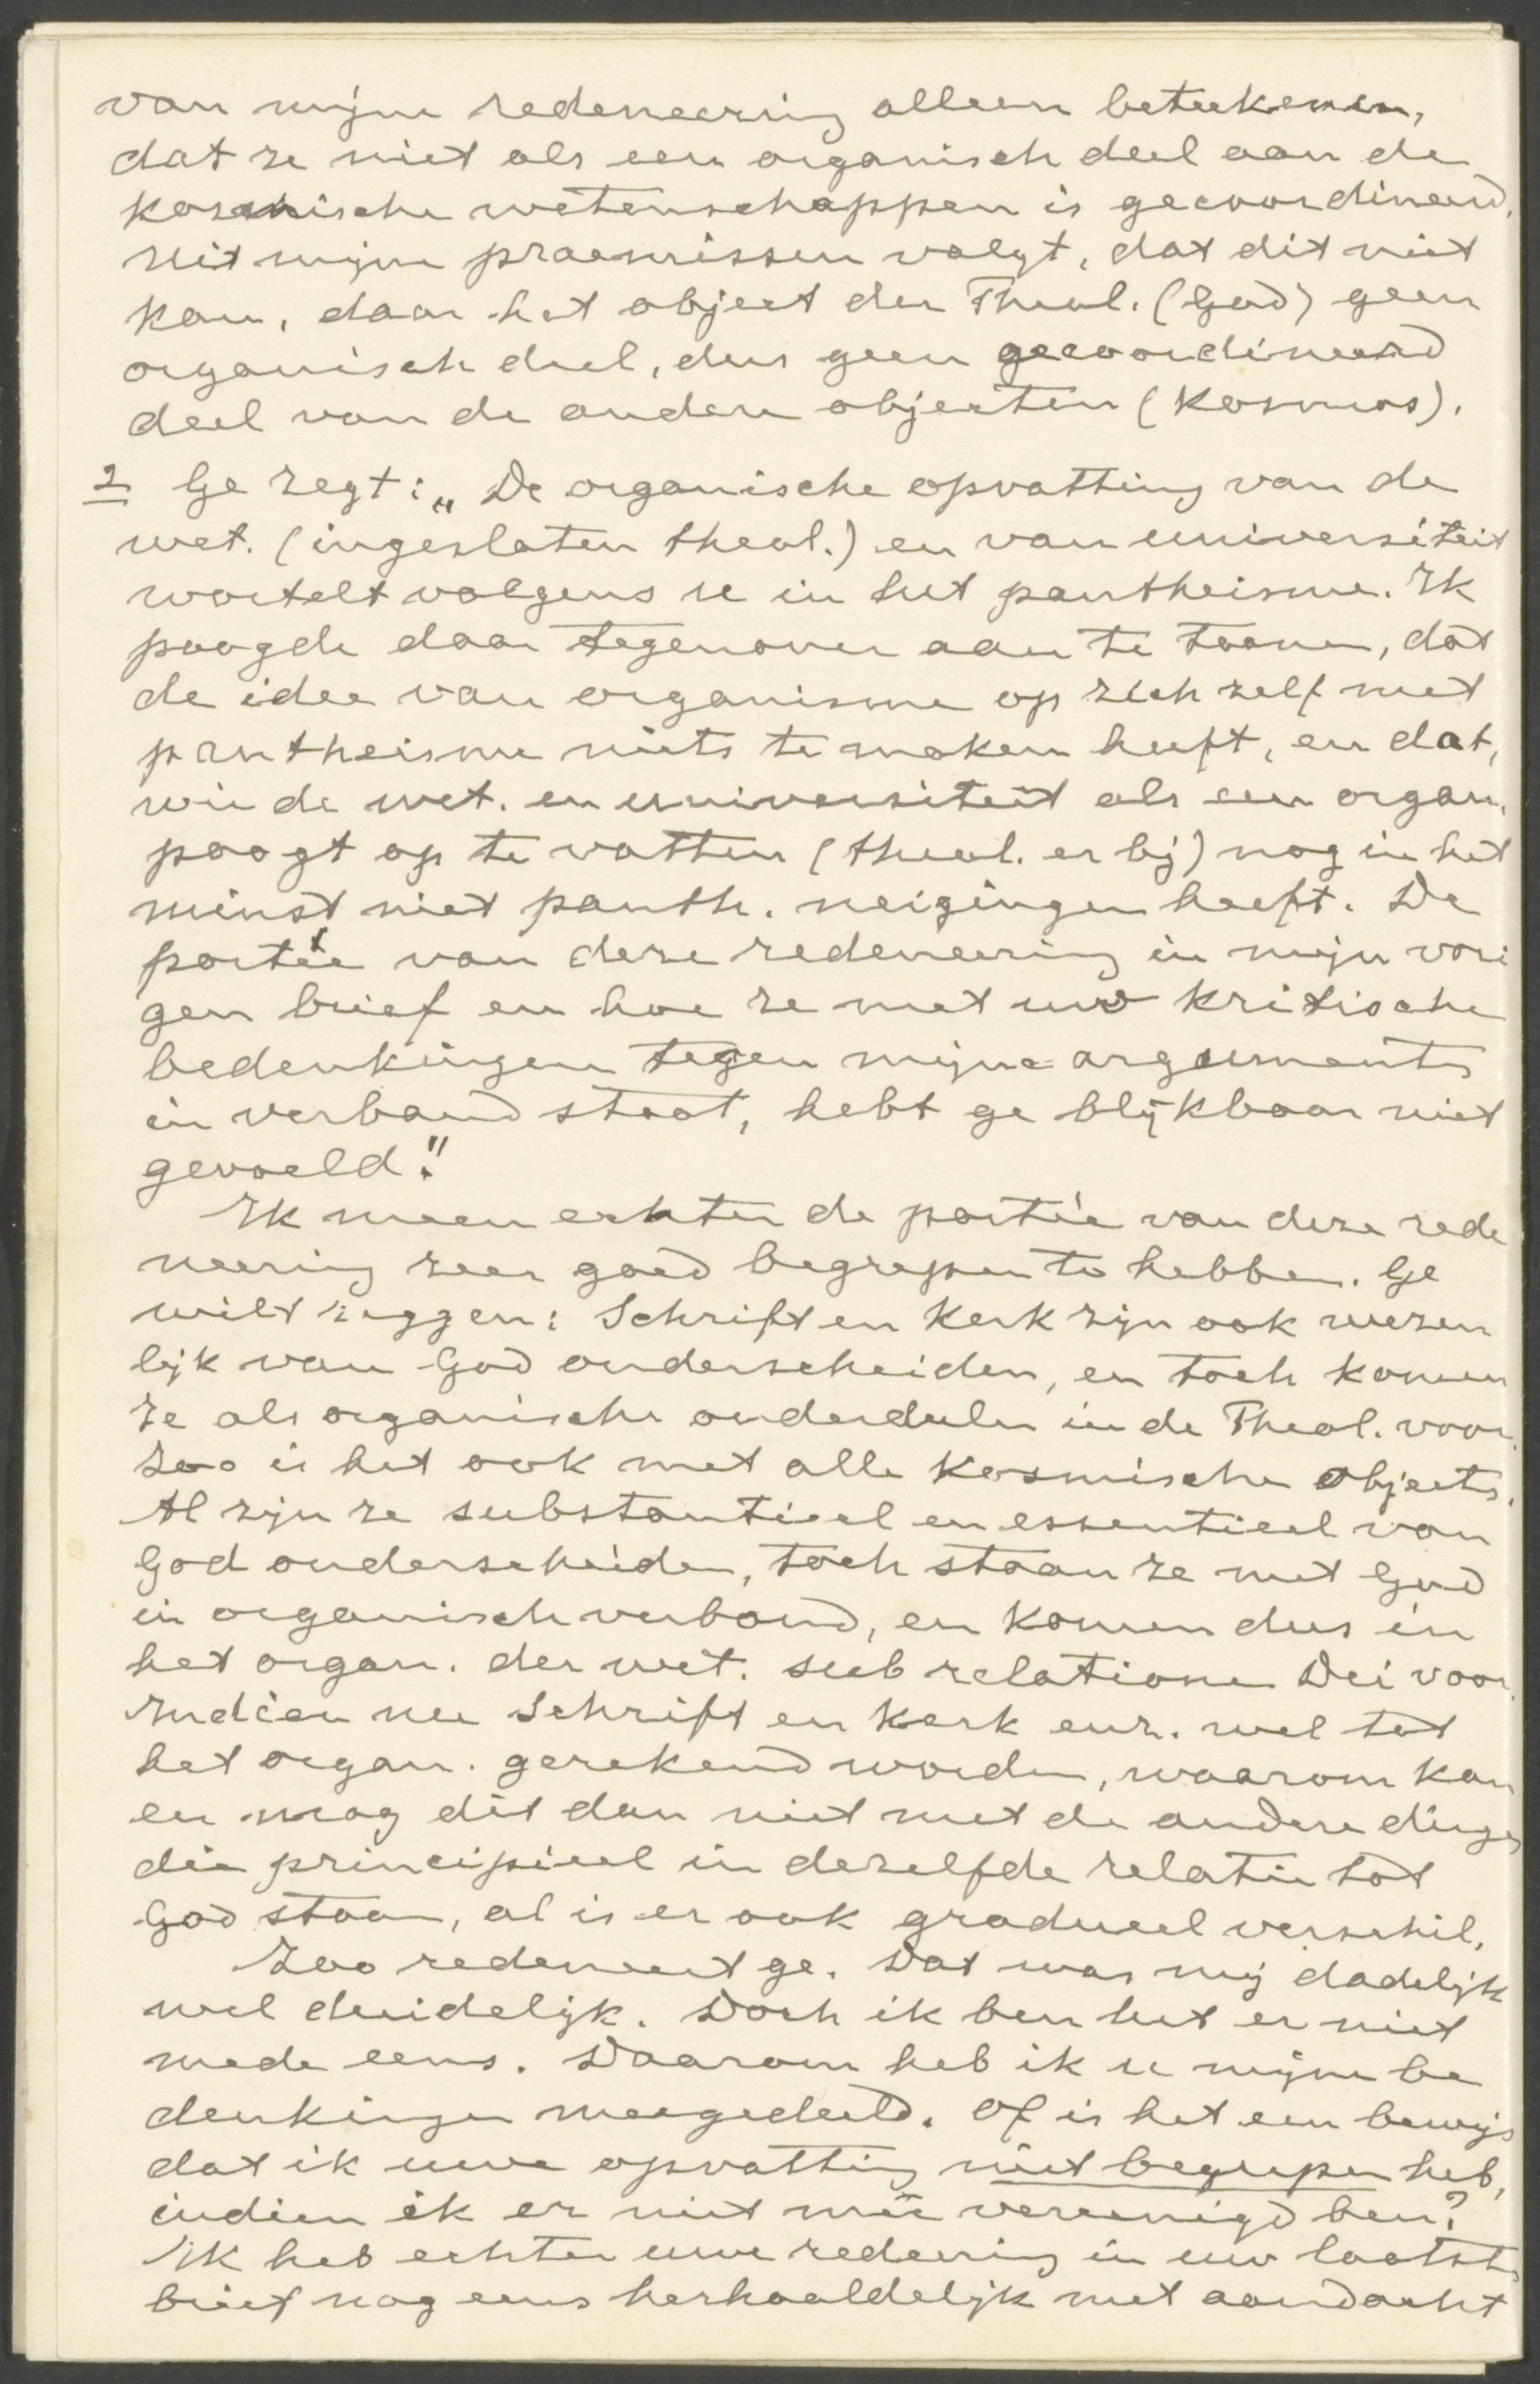 van mijne redeneering alleen beteekenen,
dat ze niet als een organisch deel aan de
kosmische wetenschappen is gecoordineerd.
Uit mijne praemissen volgt, dat dit niet
kan, daar het object der Theol. (God) geen
organisch deel, dus geen gecoordineerd
deel van de andere objecten (Kosmos).
2 Ge zegt: „De organische opvatting van de
wet. (ingesloten theol.) en van universiteit
wortelt volgens u in het pantheisme. Ik
poogde daar tegenover aan te toonen, dat
de idee van organisme op zich zelf met
pantheisme niets te maken heeft, en dat,
wie de wet. en universiteit als een organ.
poogt op te vatten (theol. er bij) nog in het
minst niet panth. neigingen heeft. De
portée van deze redeneering in mijn vori
gen brief en hoe ze met uw kritische
bedenkingen tegen mijne argumenten
in verband staat, hebt ge blijkbaar niet
gevoeld."
Ik meen echter de portée van deze rede
neering zeer goed begrepen te hebben. Ge
wilt zeggen: Schrift en Kerk zijn ook wezen
lijk van God onderscheiden, en toch komen
ze als organische onderdeelen in de Theol. voor.
Zoo is het ook met alle kosmische objects.
Al zijn ze substantieel en essentieel van
God onderscheiden, toch staan ze met God
in organisch verband, en komen dus in
het organ. der wet. sub relatione Dei voor.
Indien nu Schrift en Kerk enz. wel tot
het organ. gerekend worden, waarom kan
en mag dit dan niet met de andere dingen
die principieel in dezelfde relatie tot
God staan, al is er ook gradueel verschil.
Zoo redeneert ge. Dat was mij dadelijk
wel duidelijk. Doch ik ben het er niet
mede eens. Daarom heb ik u mijne be
denkingen meegedeeld. Of is het een bewijs
dat ik uwe opvatting niet begrepen heb,
indien ik er niet meê vereenigd ben?
Ik heb echter uwe redenering in uw laatste
brief nog eens herhaaldelijk met aandacht